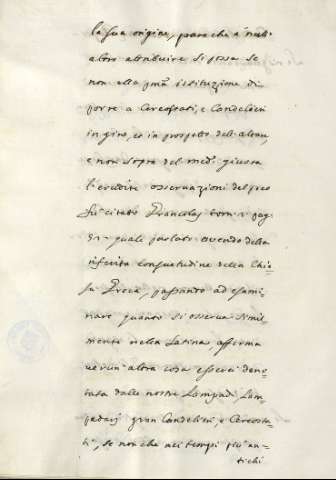 la sua origine, pare che a niuli
altro attribuire si possa se
non alla pma istituzione di
porre a Cereostati, e Candelieri
in giro, et in prospetto dell'altare,
e non sopra del med.o giusta
l'erudite osservazioni del
su citato Francolaj tom. 2 pag
quale parlato avendo della
riferita consuetudine della Chie=
sa Greca, passando ad esami=
nare quanto si osserva simil=
mente nella Latina afferma
verun'altra cosa essere deno=
tata dalle nostre Lampadi Lam=
padarj gran Candelieri, e Cereosta=
ti, se non che nei tempi più an=
tichi